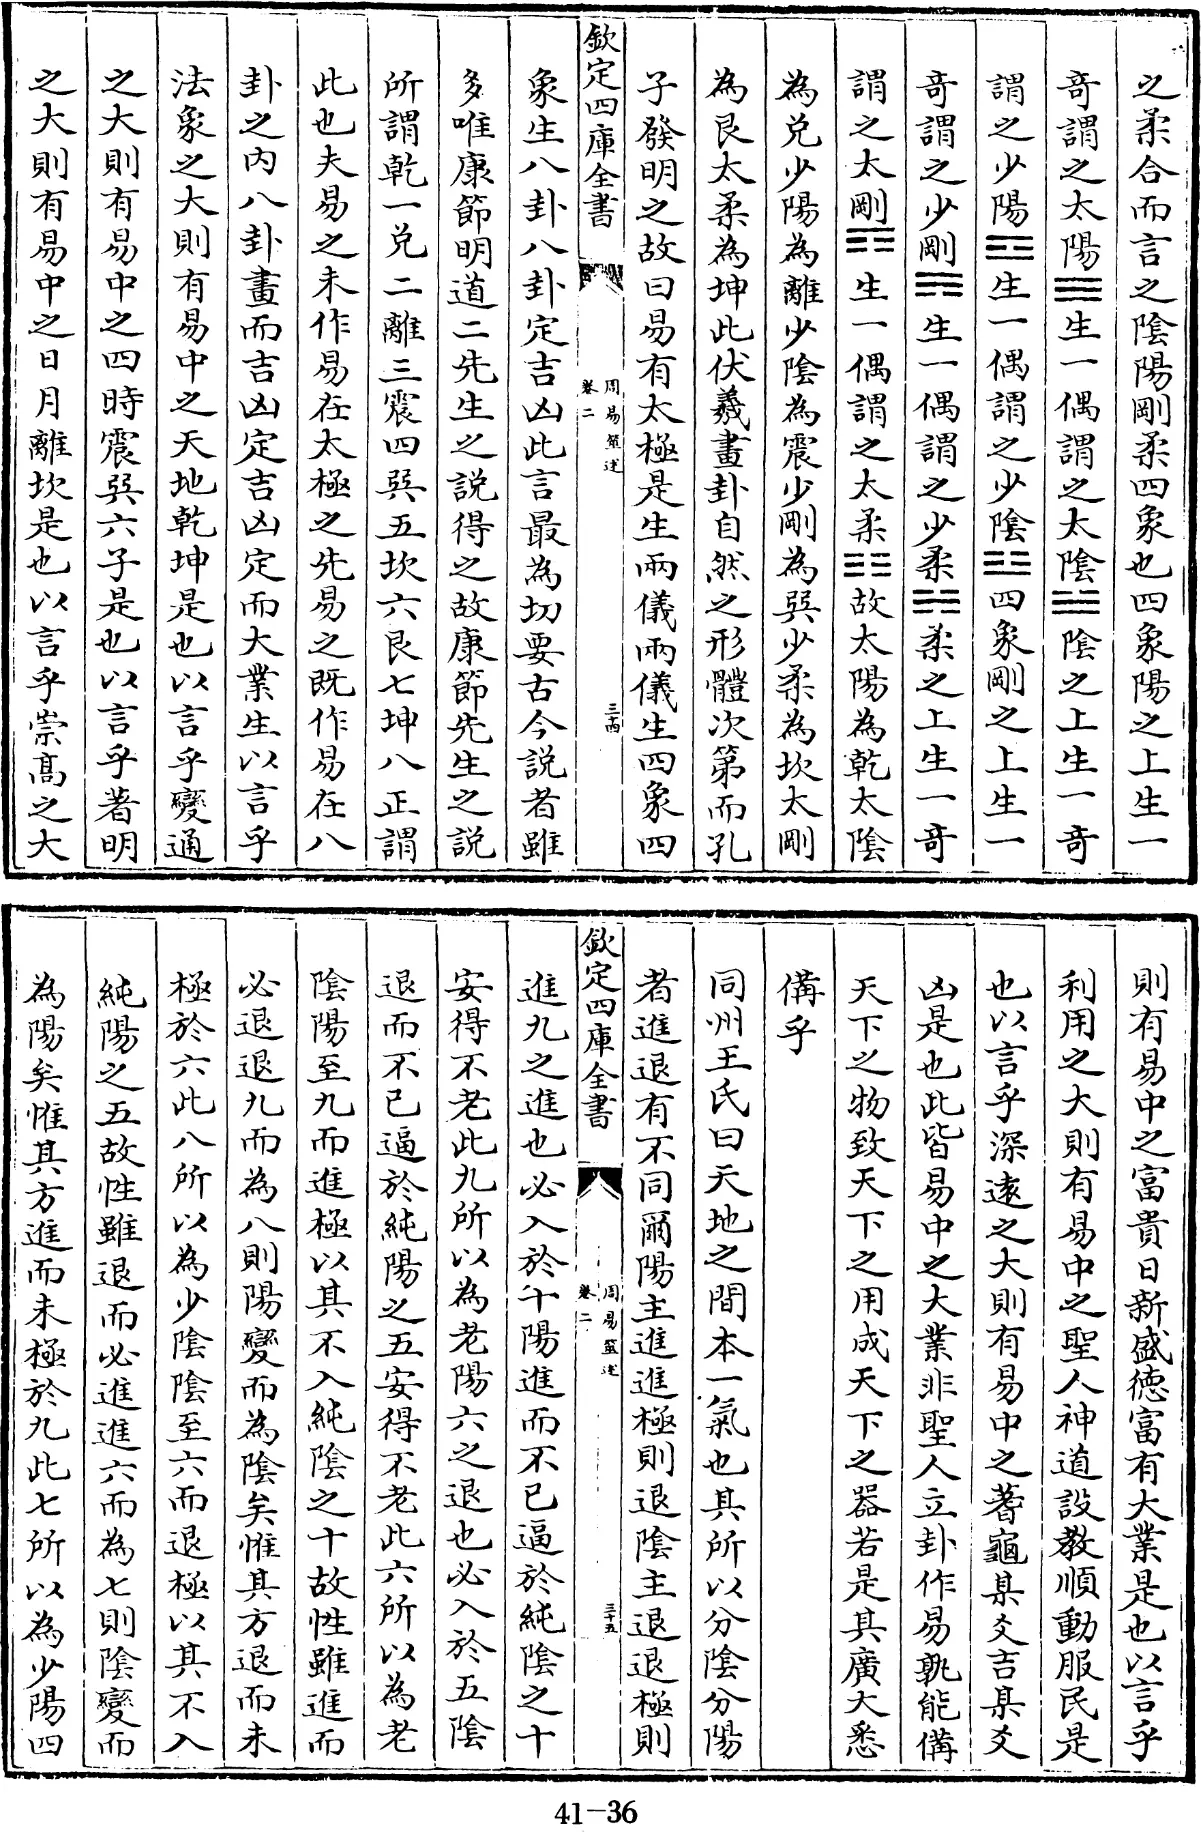 之柔合而言之陰陽剛柔四象也四象陽之上生一
奇謂之太陽☰生一偶謂之太陰☱陰之上生一奇
謂之少陽☲生一偶謂之少陰☳四象剛之上生一
奇謂之少剛☴生一偶謂之少柔☵柔之上生一奇
謂之太剛☶生一偶謂之太柔☷故太陽為乾太陰
為兌少陽為離少陰為震少剛為巽少柔為坎太剛
為艮太柔為坤此伏羲畫卦自然之形體次第而孔
子發明之故曰易有太極是生兩儀兩儀生四象四
欽定四庫全書
周易筮述
卷二
三十四
象生八卦八卦定吉凶此言最為切要古今說者雖
多唯康節明道二先生之說得之故康節先生之說
所謂乾一兌二離三震四巽五坎六艮七坤八正謂
此也夫易之未作易在太極之先易之既作易在八
卦之內八卦畫而吉凶定吉凶定而大業生以言乎
法象之大則有易中之天地乾坤是也以言乎變通
之大則有易中之四時震巽六子是也以言乎著明
之大則有易中之日月離坎是也以言乎崇高之大
則有易中之富貴日新盛德富有大業是也以言乎
利用之大則有易中之聖人神道設教順動服民是
也以言乎深遠之大則有易中之蓍龜某爻吉某爻
凶是也此皆易中之大業非聖人立卦作易孰能備
天下之物致天下之用成天下之器若是其廣大悉
備乎
同州王氏曰天地之間本一氣也其所以分陰分陽
者進退有不同爾陽主進進極則退陰主退退極則
欽定四庫全書
周易筮述
卷二
三十五
進九之進也必入於十陽進而不已逼於純陰之十
安得不老此九所以為老陽六之退也必入於五陰
退而不已逼於純陽之五安得不老此六所以為老
陰陽至九而進極以其不入純陰之十故性雖進而
必退退九而為八則陽變而為陰矣惟其方退而未
極於六此八所以為少陰陰至六而退極以其不入
純陽之五故性雖退而必進進六而為七則陰變而
為陽矣惟其方進而未極於九此七所以為少陽四
41-36